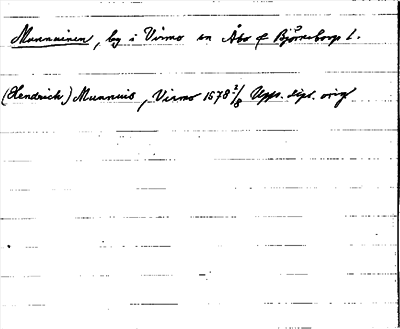 Munnuinen, by i Virmo sn Åbo & Björneborgs l.
(Hendrich) Munnuis, Virmo 1678 2/8 Upps. dipl. orig